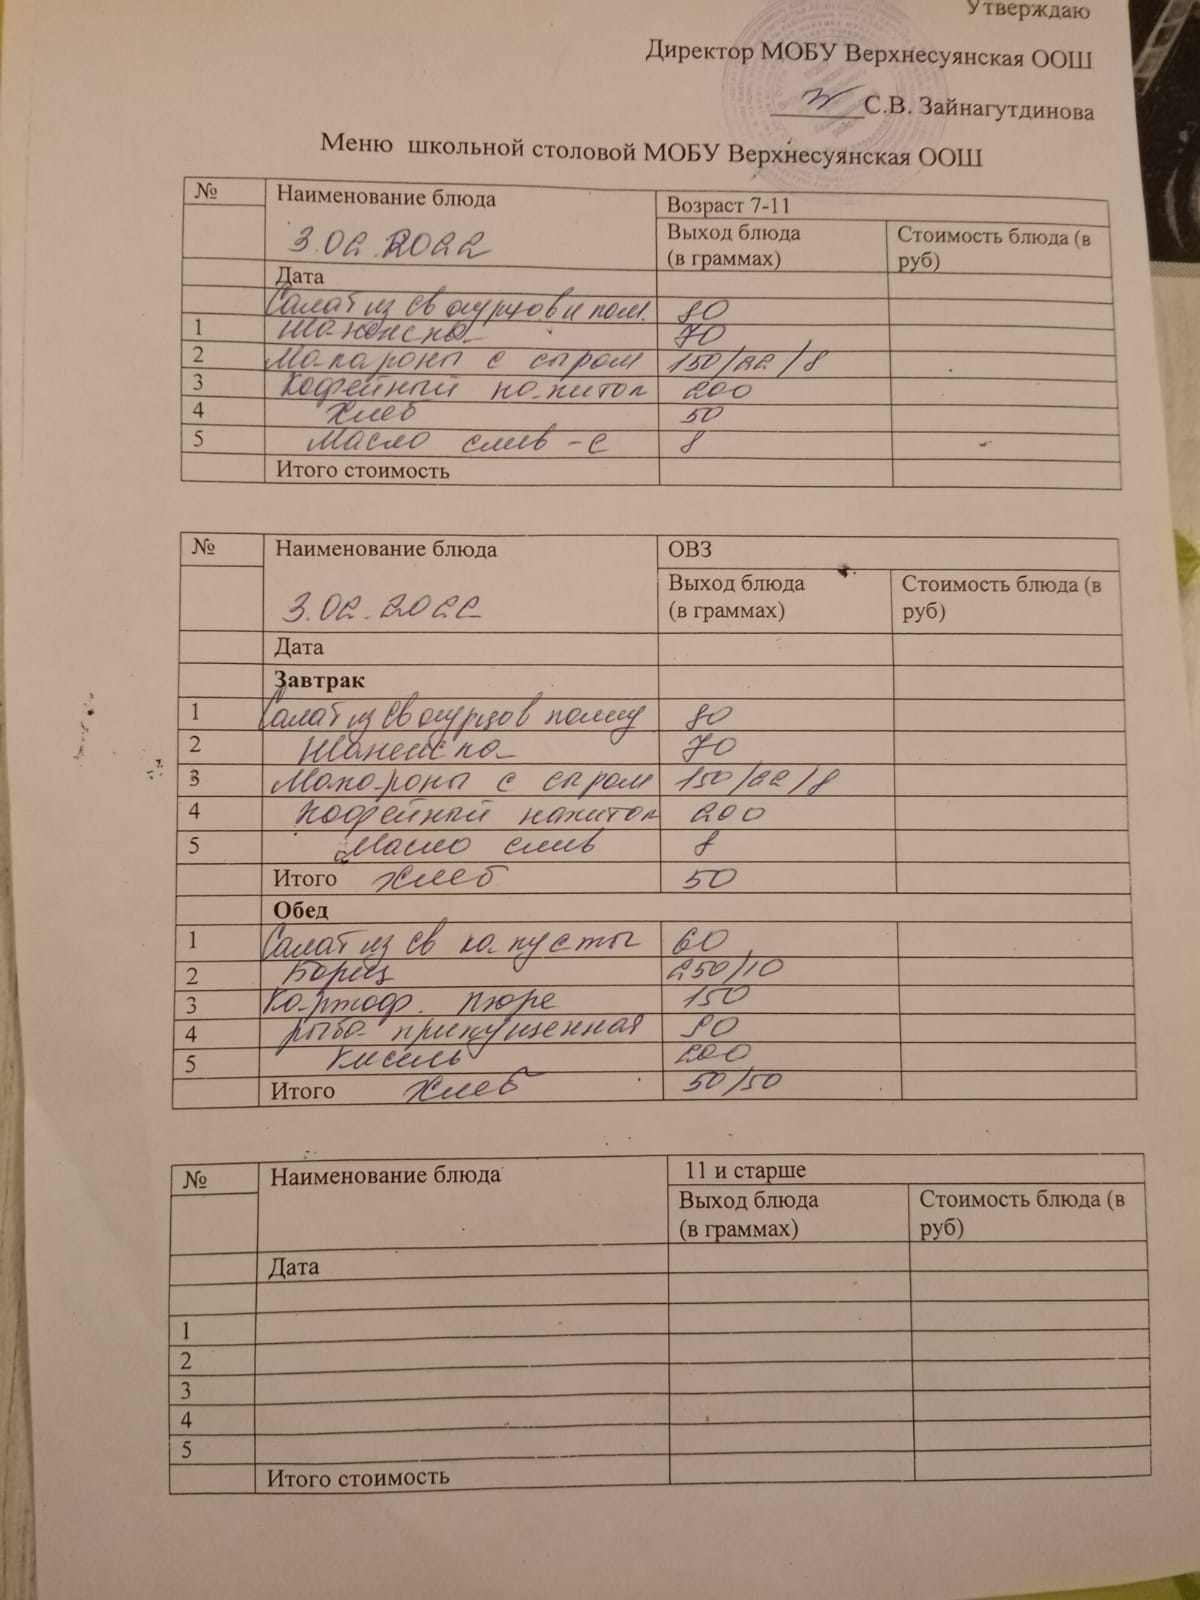 Утверждаю
Директор МОБУ Верхнесуянская ООШ
С.В. Зайнагутдинова
Меню школьной столовой МОБУ Верхнесуянская ООШ
№ Наименование блюда Возраст 7-11
3.02.2022 Выход блюда (в граммах) Стоимость блюда (в руб)
Дата
Салат из св огурцов и пом. 80
1 70
2 Макароны с сыром 150/22/8
3 Кофейный напиток 200
4 Хлеб 50
5 Масло слив-с 8
Итого стоимость
№ Наименование блюда ОВЗ
3.02.2022 Выход блюда (в граммах) Стоимость блюда (в руб)
Дата
Завтрак
1 Салат из св огурцов 80
2 70
3 Макароны с сыром 150/22/8
4 Кофейный напиток 200
5 Масло слив 8
Итого Хлеб 50
Обед
1 Салат из св капусты 60
2 Борщ 250/10
3 Картоф. пюре 150
4 рыба припущенная 90
5 Кисель 200
Итого Хлеб 50/50
№ Наименование блюда 11 и старше
Выход блюда (в граммах) Стоимость блюда (в руб)
Дата
1
2
3
4
5
Итого стоимость